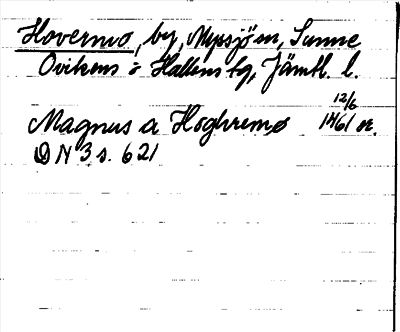 Hovermo, by, Myssjö sn, Sunne
Ovikens o Hallens tg, Jämtl. l.
12/6
Magnus a Hoghremo 1461 or.
DN 3 s. 621